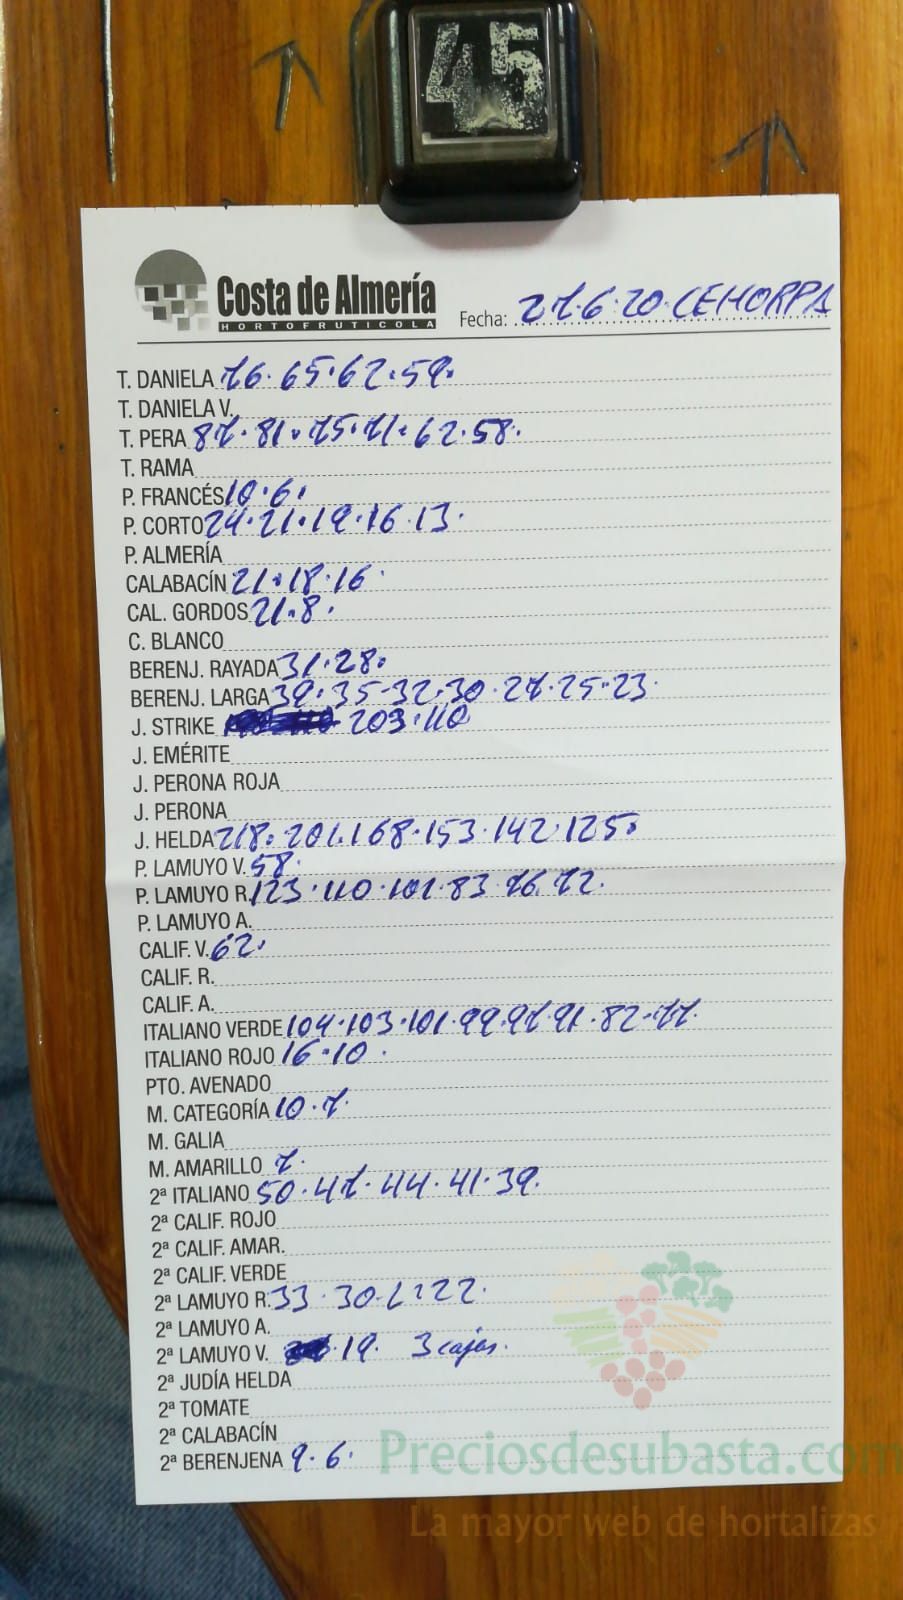 45
Costa de Almería
HORTOFRUTICOLA
Fecha: 27.6.20 CEHORPA
T. DANIELA 76.65.62.59.
T. DANIELA V.
T. PERA 87.81.75.71.62.58.
T. RAMA
P. FRANCÉS 10.6.
P. CORTO 24.21.19.16.13.
P. ALMERÍA
CALABACÍN 21.18.16.
CAL. GORDOS 21.8.
C. BLANCO
BERENJ. RAYADA 31.28.
BERENJ. LARGA 39.35.32.30.27.25.23.
J. STRIKE 203.110
J. EMÉRITE
J. PERONA ROJA
J. PERONA
J. HELDA 218.201.168.153.142.125.
P. LAMUYO V. 58.
P. LAMUYO R. 123.110.101.83.76.72.
P. LAMUYO A.
CALIF. V. 62.
CALIF. R.
CALIF. A.
ITALIANO VERDE 104.103.101.99.97.91.82.77.
ITALIANO ROJO 16.10.
PTO. AVENADO
M. CATEGORÍA 10.7.
M. GALIA
M. AMARILLO 7.
2ª ITALIANO 50.47.44.41.39.
2ª CALIF. ROJO
2ª CALIF. AMAR.
2ª CALIF. VERDE
2ª LAMUYO R. 33.30. 22.
2ª LAMUYO A.
2ª LAMUYO V. 19. 3 cajas.
2ª JUDÍA HELDA
2ª TOMATE
2ª CALABACÍN
2ª BERENJENA 9.6.
Preciosdesubasta.com
La mayor web de hortalizas